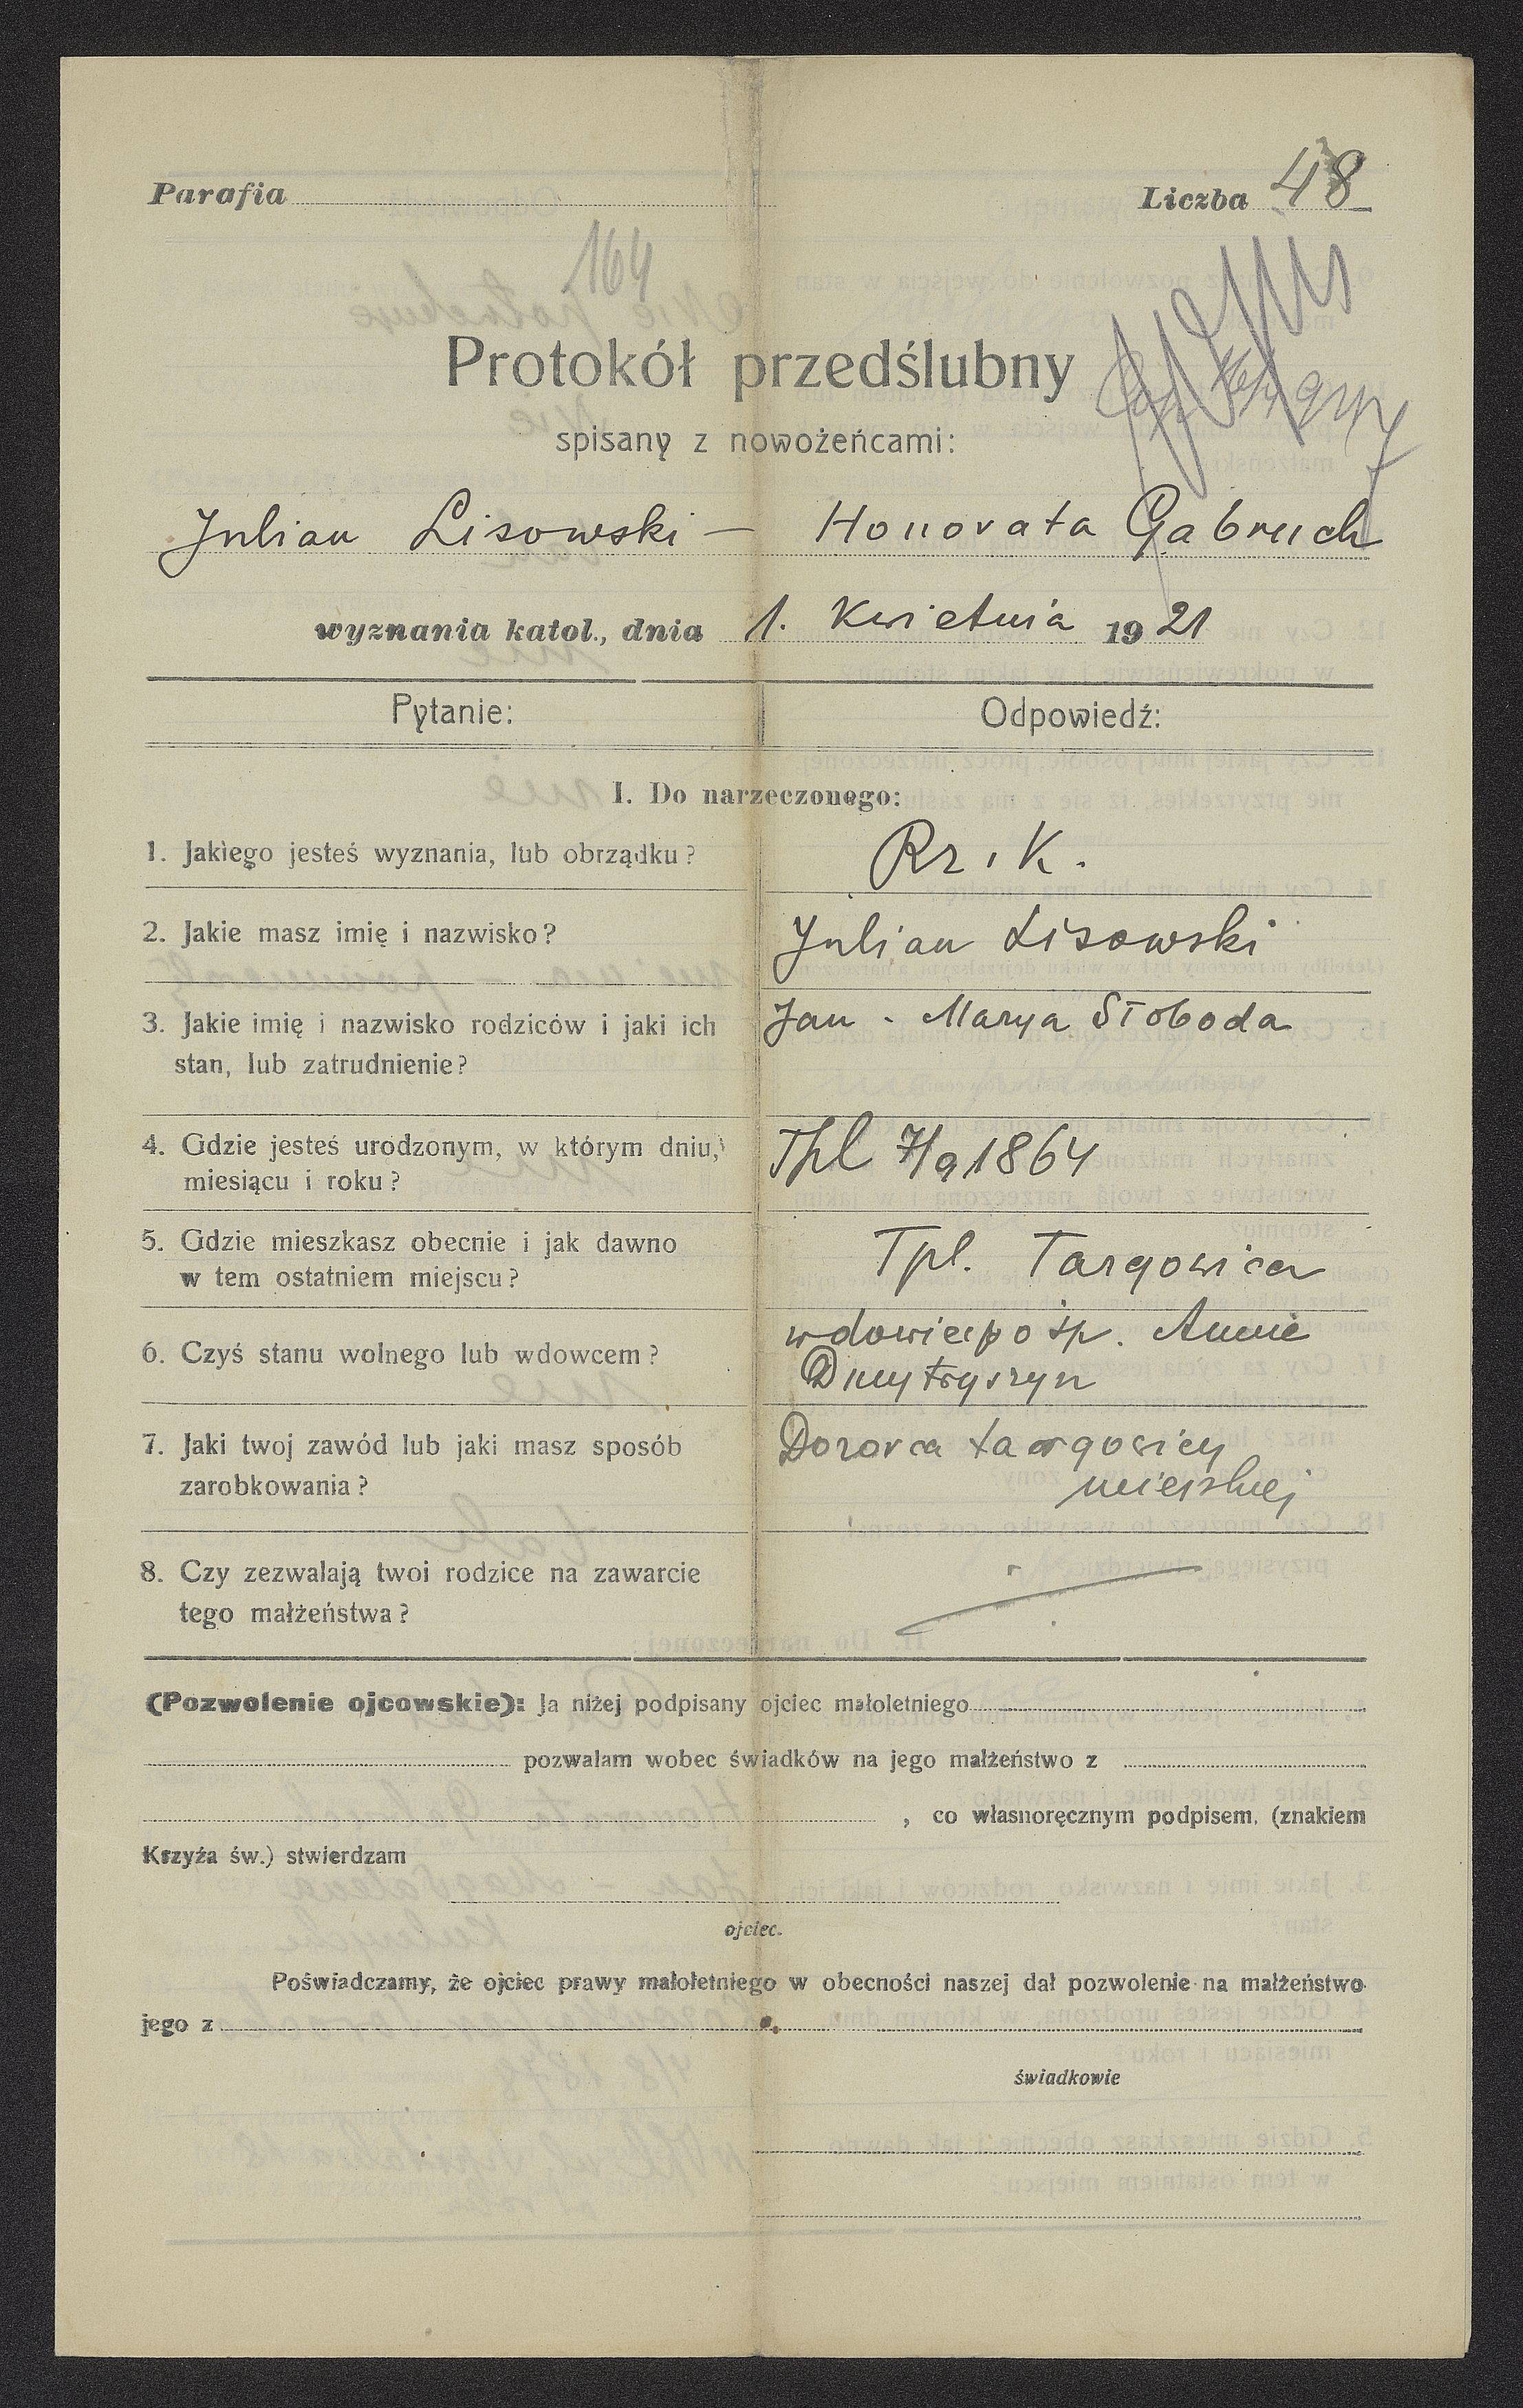 Parafia
Liczba 48
164
Protokół przedślubny
spisany z nowożeńcami:
Julian Lisowski — Honorata Gabruch
wyznania katol., dnia 1. Kwietnia 1921
Pytanie:
Odpowiedź:
I. Do narzeczonego:
1. Jakiego jesteś wyznania, lub obrządku?
Rz. K.
2. Jakie masz imię i nazwisko?
Julian Lisowski
3. Jakie imię i nazwisko rodziców i jaki ich
stan, lub zatrudnienie?
Jan - Marya Słoboda
4. Gdzie jesteś urodzonym, w którym dniu,
miesiącu i roku?
Tpl 7/9 1864
5. Gdzie mieszkasz obecnie i jak dawno
w tem ostatniem miejscu?
Tpl. Targowica
6. Czyś stanu wolnego lub wdowcem?
wdowiec po śp. Annie
Dmytryszyn
7. Jaki twoj zawód lub jaki masz sposób
zarobkowania?
Dozorca targowicy
miejskiej
8. Czy zezwalają twoi rodzice na zawarcie
tego małżeństwa?
(Pozwolenie ojcowskie): Ja niżej podpisany ojciec małoletniego
pozwalam wobec świadków na jego małżeństwo z
, co własnoręcznym podpisem, (znakiem
Krzyża św.) stwierdzam
ojciec.
Poświadczamy, że ojciec prawy małoletniego w obecności naszej dał pozwolenie na małżeństwo
jego z
świadkowie